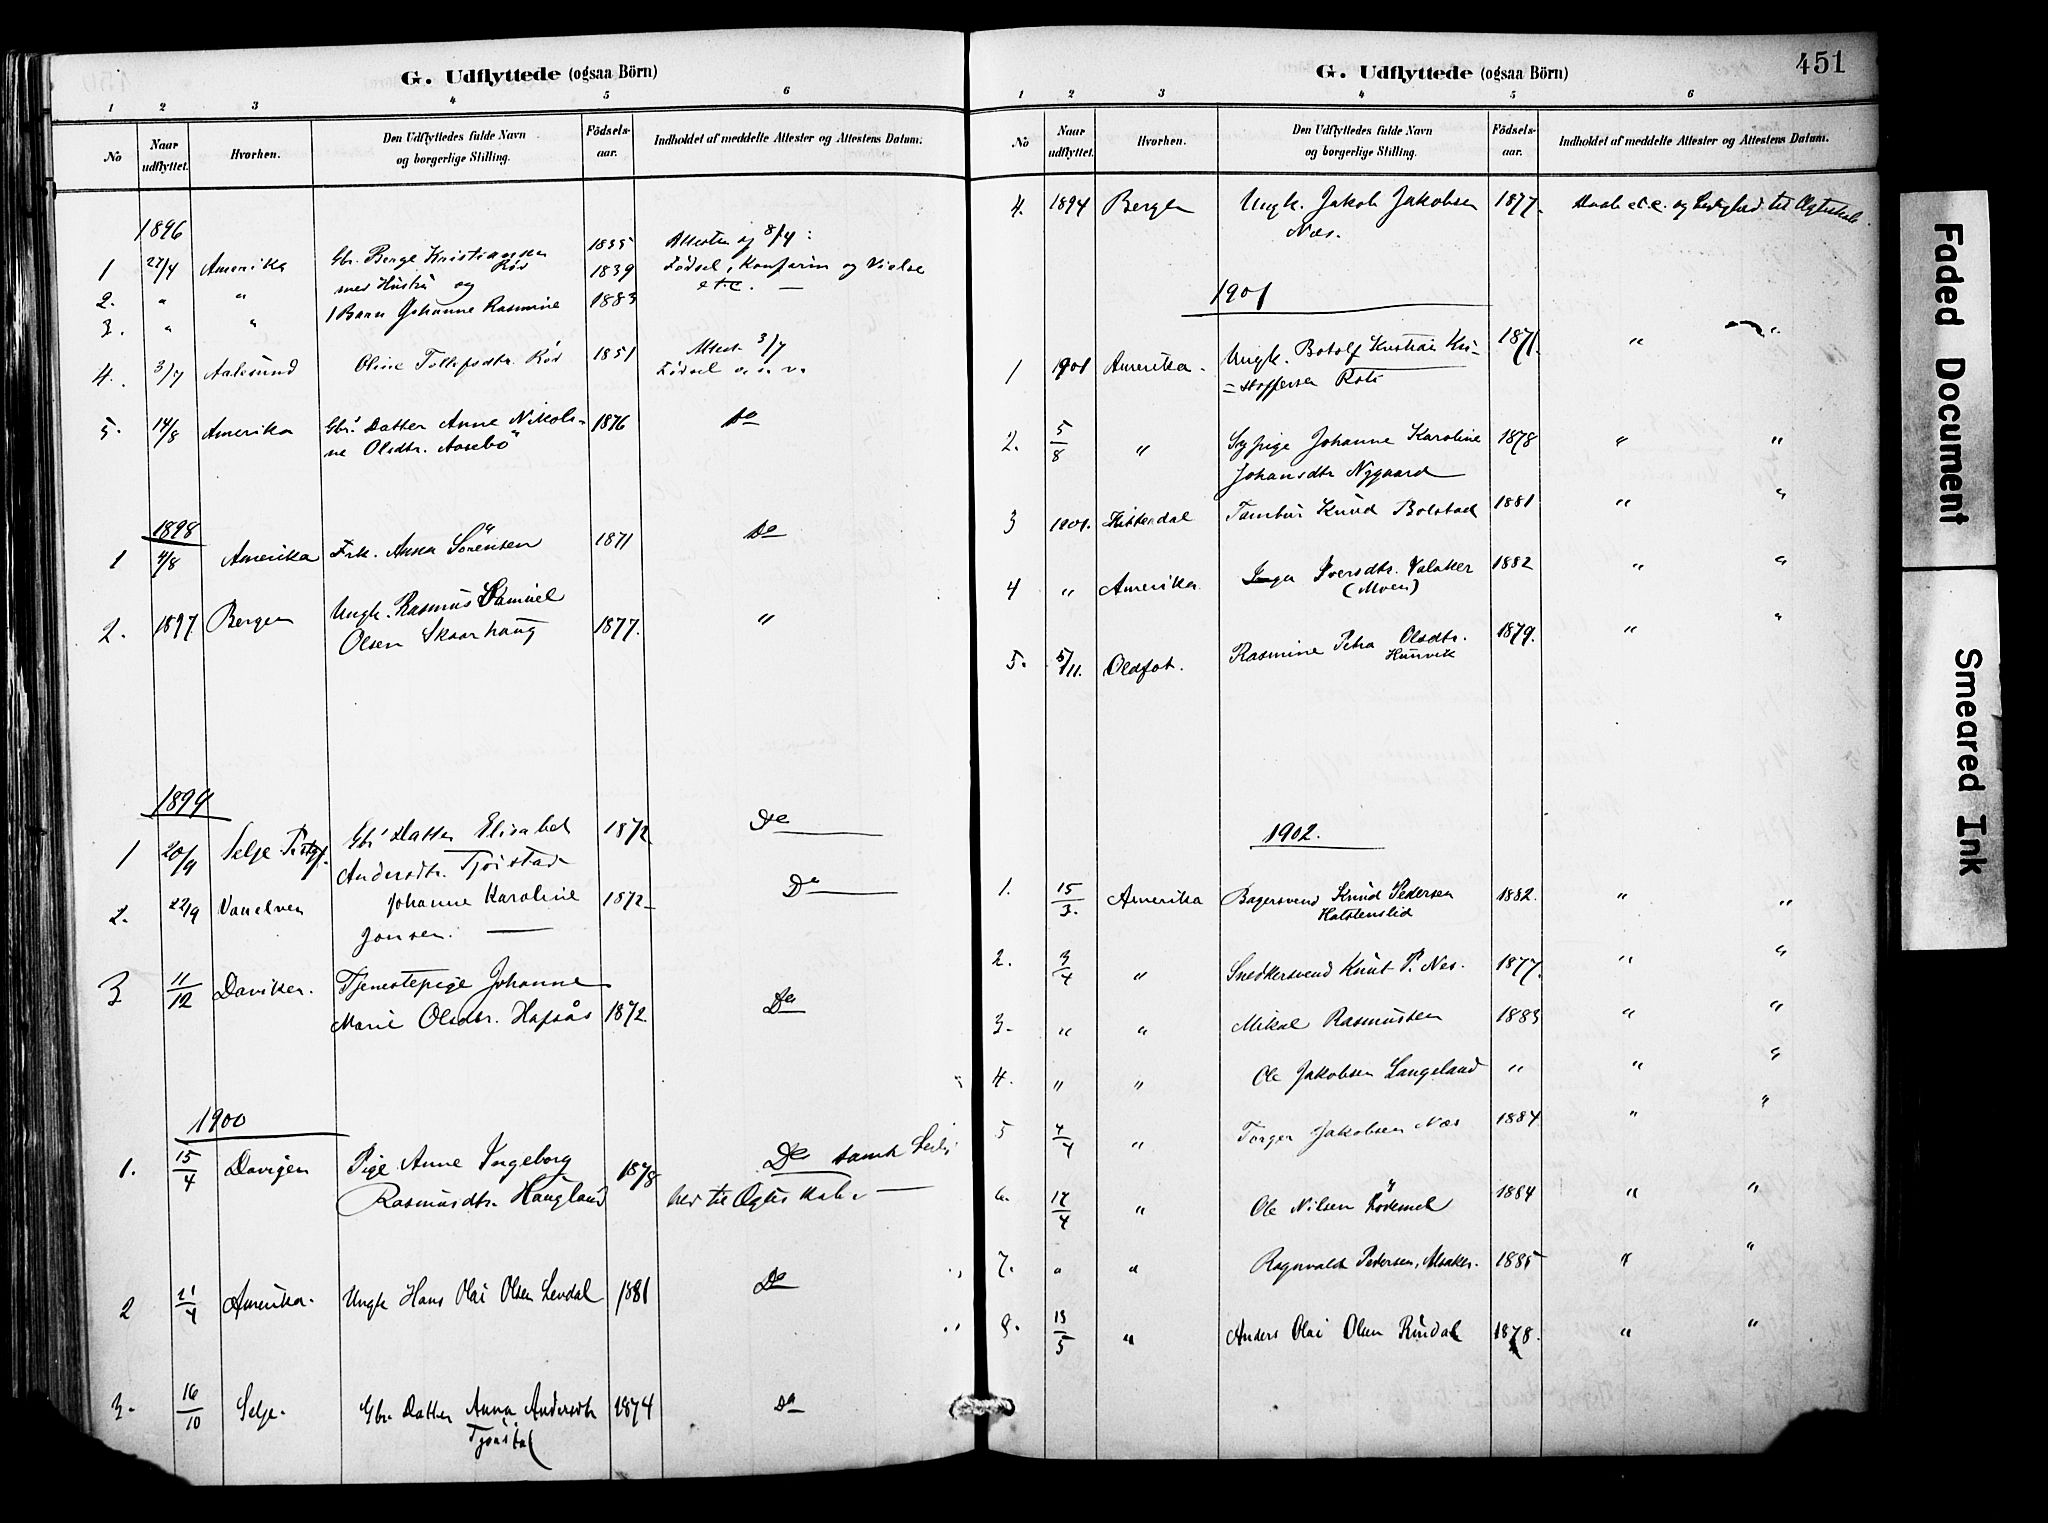 G. Udflyttede (ogsaa Börn)
1 2 3 4 5 6
No
Naar udflyttet.
Hvorhen.
Den Udflyttedes fulde Navn og borgerlige Stilling.
Födsels-aar.
Indholdet af meddelte Attester og Attestens Datum.
1896
1 27/4 Amerika Gbr. Berge Kristiansen Röd 1835 Attester af 8/4:
2. " " med Hustru og 1839 Födsel, Konfirm og Vielse
3. " " 1 Barn Johanne Rasmine 1883 etc. —
4. 3/7 Aalesund Oline Tollefsdtr. Röd 1851 Attest 3/7
Födsel o. s. v.
5. 14/8 Amerika Gbr. Datter Anne Nikoli- 1876 Do
ne Olsdtr. Aasebö
1898
1 4/8 Amerika Frk. Anna Sörensen 1871 Do
2. 1897 Bergen Ungk. Rasmus Daniel
Olsen Skaarhaug 1877. "
1899
1 20/9 Selje Prstgj. Gbr. Datter Elisabet 1872 Do
Andersdtr. Tjöstad
2. 22/9 Vanelven Johanne Karoline 1872 Do
Jonsen. —
3 11/12 Daviken. Tjenestepige Johanne
Marie Olsdtr. Hafsås 1872 Do
1900
1. 15/4 Davigen Pige Anne Ingeborg 1878 Do samt Ledig
Rasmusdtr. Haugland hed til Ægteskab. —
2 21/4 Amerika. Ungk Hans Olai Olsen Levdal 1881 Do
3. 16/10 Selje. Gbr. Datter Anna Andersdtr 1874 Do
Tjöstad
G. Udflyttede (ogsaa Börn)
451
1 2 3 4 5 6
No
Naar udflyttet.
Hvorhen.
Den Udflyttedes fulde Navn og borgerlige Stilling.
Födsels-aar.
Indholdet af meddelte Attester og Attestens Datum.
4. 1894 Bergen Ungk. Jakob Jakobsen 1877. Daab etc. og Ledighed til Ægteskab.
Næs.
1901
1 1901 Amerika. Ungk. Botolf Kristian Kri- 1871. " "
= stoffersen Rots
2. 5/8 " Sypige Johanne Karoline 1878 " "
Johansdtr Nygaard
3 1901. Hitterdal Tambur Knud Bolstad 1881 " "
4 " Amerika Inga Iversdtr. Valaker 1882 " "
(Moen)
5. 5/11. Oldfot. Rasmine Petra Olsdtr. 1879. " "
Hunvik
1902.
1. 15/3. Amerika Bagersvend Knud Pedersen 1882. " "
Hatlenslid
2. 3/4 " Snedkersvend Knut P. Nes. 1877. " "
3. " " Mikal Rasmussen 1883 " "
4. " " Ole Jakobsen Langeland " " "
5 4/4 " Torger Jakobsen Næs 1884. " "
6. 17/4 " Ole Nilsen Lödemel 1884 " "
7. " " Ragnvald Pedersen, Alsaker. 1885 " "
8. 13/5 " Anders Olai Olsen Rindal 1878. " "
Faded Document
Smeared Ink